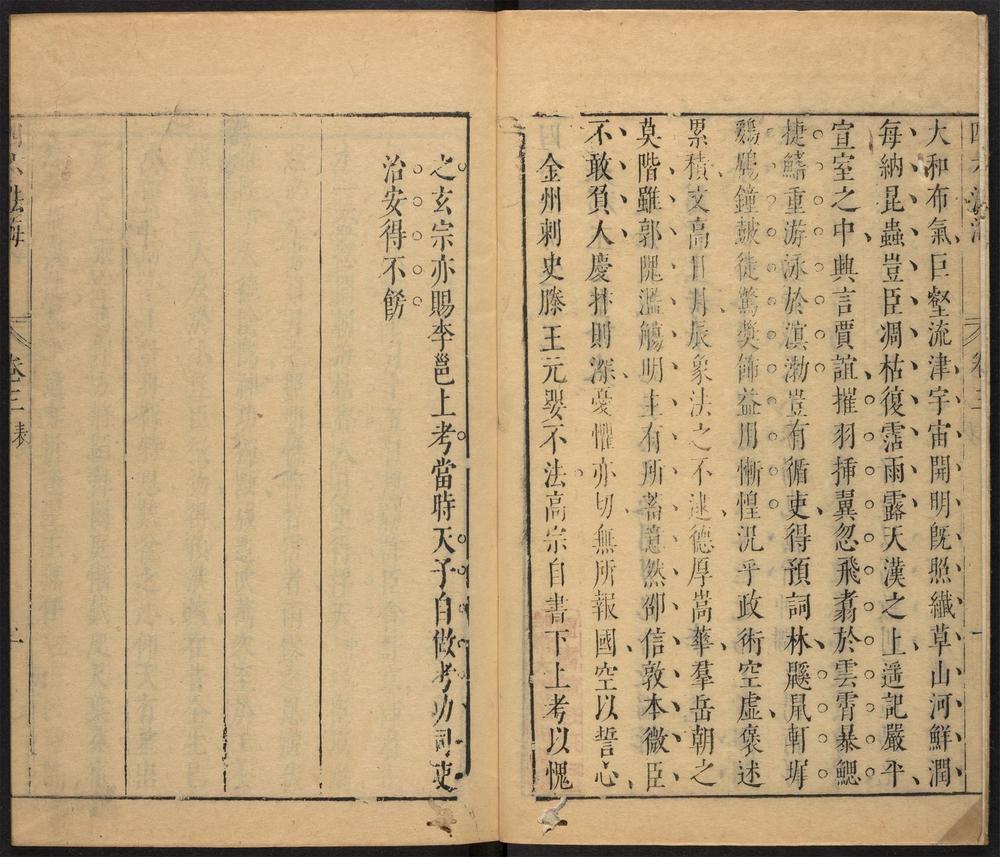 大和布氣巨壑流津宇宙開明旣照纖草山河鮮潤
每納昆蟲豈臣凋枯復霑雨露天漢之上遥記嚴平
宣室之中興言賈誼摧羽揷翼忽飛翥於雲霄暴鰓
捷鰭重游泳於溟渤豈有循吏得預詞林鼷鼠軒墀
鷄鶋鐘鼓徒驚奬飾益用慚惶況乎政術空虛褒述
累積文高日月辰象法之不逮德厚嵩華羣岳朝之
莫階雖郭隗濫觴明主有所蓄憶然仰信敦本微臣
不敢負人慶抃則深憂懼亦切無所報國空以誓心
金州刺史滕王元嬰不法高宗自書下上考以愧
之玄宗亦賜李邕上考當時天子自做考功司吏
治安得不飭
卷三
表